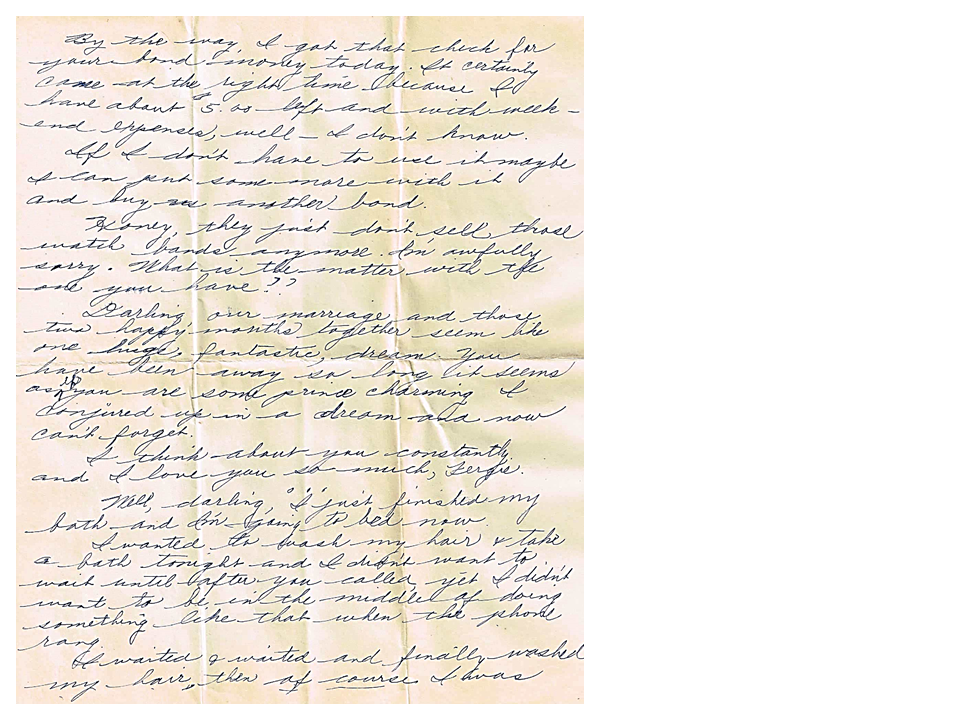 By the way, I got that check for
your bond money today. It certainly
came at the right time because I
have about $5.00 left and with week-
end expenses, well - I don't know.
If I don't have to use it maybe
I can put some more with it
and buy another bond.
Honey, they just don't sell those
watch bands anymore. I'm awfully
sorry. What is the matter with the
one you have??
Darling our marriage and those
two happy months together seem like
one huge, fantastic, dream. You
have been away so long it seems
as if you are some prince charming I
conjured up in a dream and now
can't forget.
I think about you constantly
and I love you so much, Fergie.
Well, darling, "I" just finished my
bath and I'm going to bed now.
I wanted to wash my hair & take
a bath tonight and I didn't want to
wait until after you called yet I didn't
want to be in the middle of doing
something like that when the phone
rang.
I waited & waited and finally washed
my hair, then of course I was